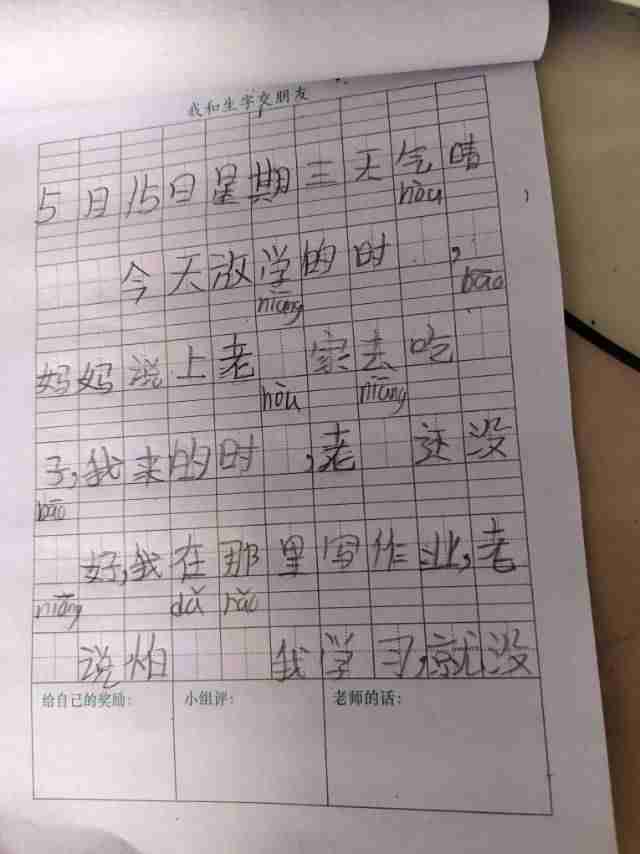 我和生字交朋友
5月15日星期三天气晴
hòu
今天放学的时 ，
niāng bāo
妈妈说上老 家去吃
hòu niāng
子,我来的时 ,老 还没
bāo
好,我在那里写作业,老
niāng dǎ rǎo
说怕 我学习,就没
给自己的奖励: 小组评: 老师的话: